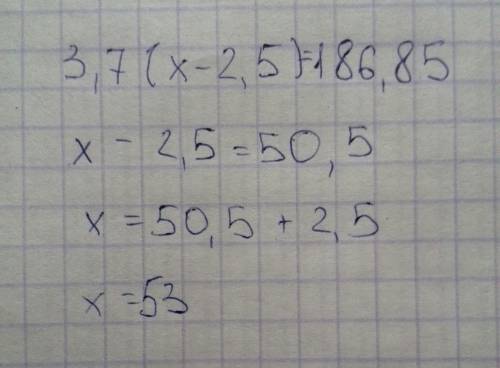 3,7(x-2,5)=186,85
x - 2,5=50,5
x=50,5 + 2,5
x=53